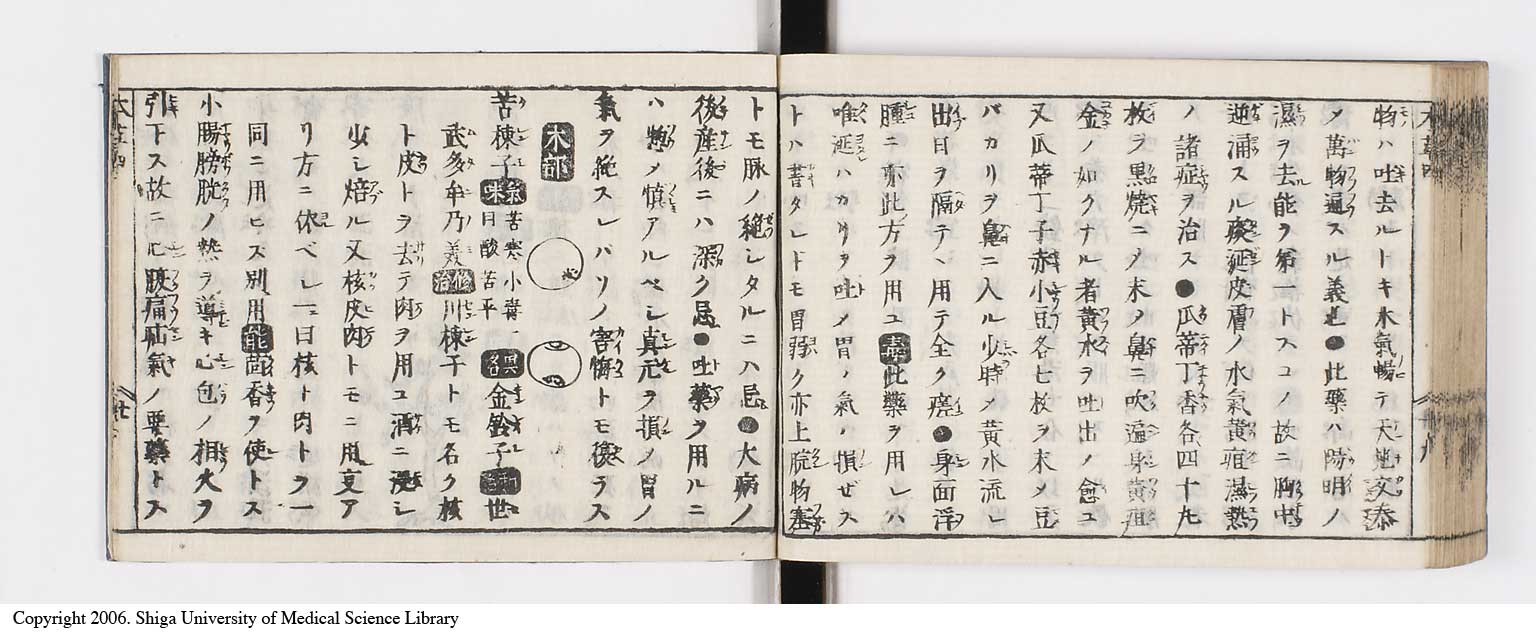 物ハ吐去ルトキ木氣暢テ天地交泰
ノ萬物通スル義也●此藥ハ陽明ノ
濕ヲ去能ヲ第一トスユノ故ニ胸中
逆涌スル痰涎皮膚ノ水氣黄疸濕熱
ノ諸症ヲ治ス●瓜蒂丁香各四十九
枚ヲ黒焼ニノ末ノ鼻ニ吹遍身黄疸
金ノ如クナル者黄水ヲ吐出ノ愈ユ
又瓜蒂丁子赤小豆各七枚ヲ末メ豆
バカリヲ鼻ニ入ル少時メ黄水流レ
出日ヲ隔テヽ用テ全ク瘥●身面浮
腫ニ亦此方ヲ用ユ毒此藥ヲ用レハ
唯涎ハカリヲ吐メ胃ノ氣ハ損ぜス
トハ書タレドモ胃弱ク亦上脘物塞
トモ脉ノ絶シタルニハ忌●大病ノ
後産後ニハ深ク忌●吐藥ヲ用ルニ
ハ惣メ慎アルベシ真元ヲ損ノ胃ノ
氣ヲ絶スレバソノ害悔トモ復ラス
木部
苦楝子氣味苦寒小毒一曰酸苦平異名金鈴子和世
武多牟乃美修治川楝子トモ名ク核
ト皮トヲ去テ肉ヲ用ユ酒ニ浸シ
少シ焙ル又核皮肉トモニ用叓ア
リ方ニ依ベレ一ニ曰核ト肉トヲ一
同ニ用ヒス別用能茴香ヲ使トス
小腸膀胱ノ熱ヲ導キ心包ノ相火ヲ
引下ス故ニ心腹痛疝氣ノ要藥トス
Copyright 2006. Shiga University of Medical Science Library